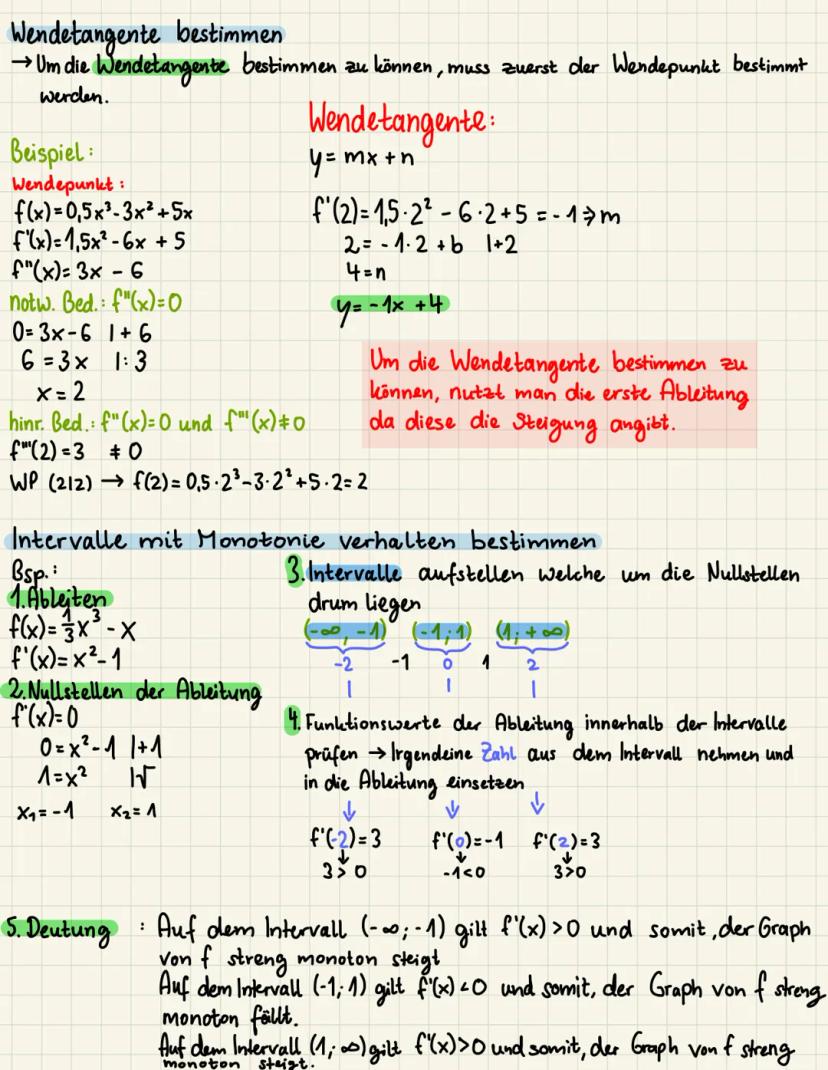 Wendetangente bestimmen
→ Um die Wendetangente bestimmen zu können, muss zuerst der Wendepunkt bestimmt
werden.
Beispiel:
Wendepunkt:
f(x)=0,5x³-3x²+5x
f'(x)=1,5x²-6x+5
f''(x)=3x-6
notw. Bed.: f''(x)=0
0=3x-6 |+6
6=3x |:3
x=2
hinr. Bed.: f''(x)=0 und f'''(x)≠0
f'''(2)=3 ≠0
WP (2|2) → f(2)=0,5·2³-3·2²+5·2=2
Wendetangente:
y=mx+n
f'(2)=1,5·2²-6·2+5=-1⇒m
2=-1·2+b |+2
4=n
y=-1x+4
Um die Wendetangente bestimmen zu
können, nutzt man die erste Ableitung
da diese die Steigung angibt.
Intervalle mit Monotonie verhalten bestimmen
Bsp.:
1.Ableiten
f(x)=⅓x³-x
f'(x)=x²-1
2.Nullstellen der Ableitung
f'(x)=0
0=x²-1 |+1
1=x² |√
x₁=-1 x₂=1
3.Intervalle aufstellen welche um die Nullstellen
drum liegen
(-∞,-1) (-1;1) (1;+∞)
-2 -1 0 1 2
4.Funktionswerte der Ableitung innerhalb der Intervalle
prüfen → Irgendeine Zahl aus dem Intervall nehmen und
in die Ableitung einsetzen
↓ ↓ ↓
f'(-2)=3 f'(0)=-1 f'(2)=3
↓ ↓ ↓
3>0 -1<0 3>0
5. Deutung : Auf dem Intervall (-∞;-1) gilt f'(x)>0 und somit, der Graph
von f streng monoton steigt
Auf dem Intervall (-1;1) gilt f'(x)<0 und somit, der Graph von f streng
monoton fällt.
Auf dem Intervall (1;∞) gilt f'(x)>0 und somit, der Graph von f streng
monoton steigt.